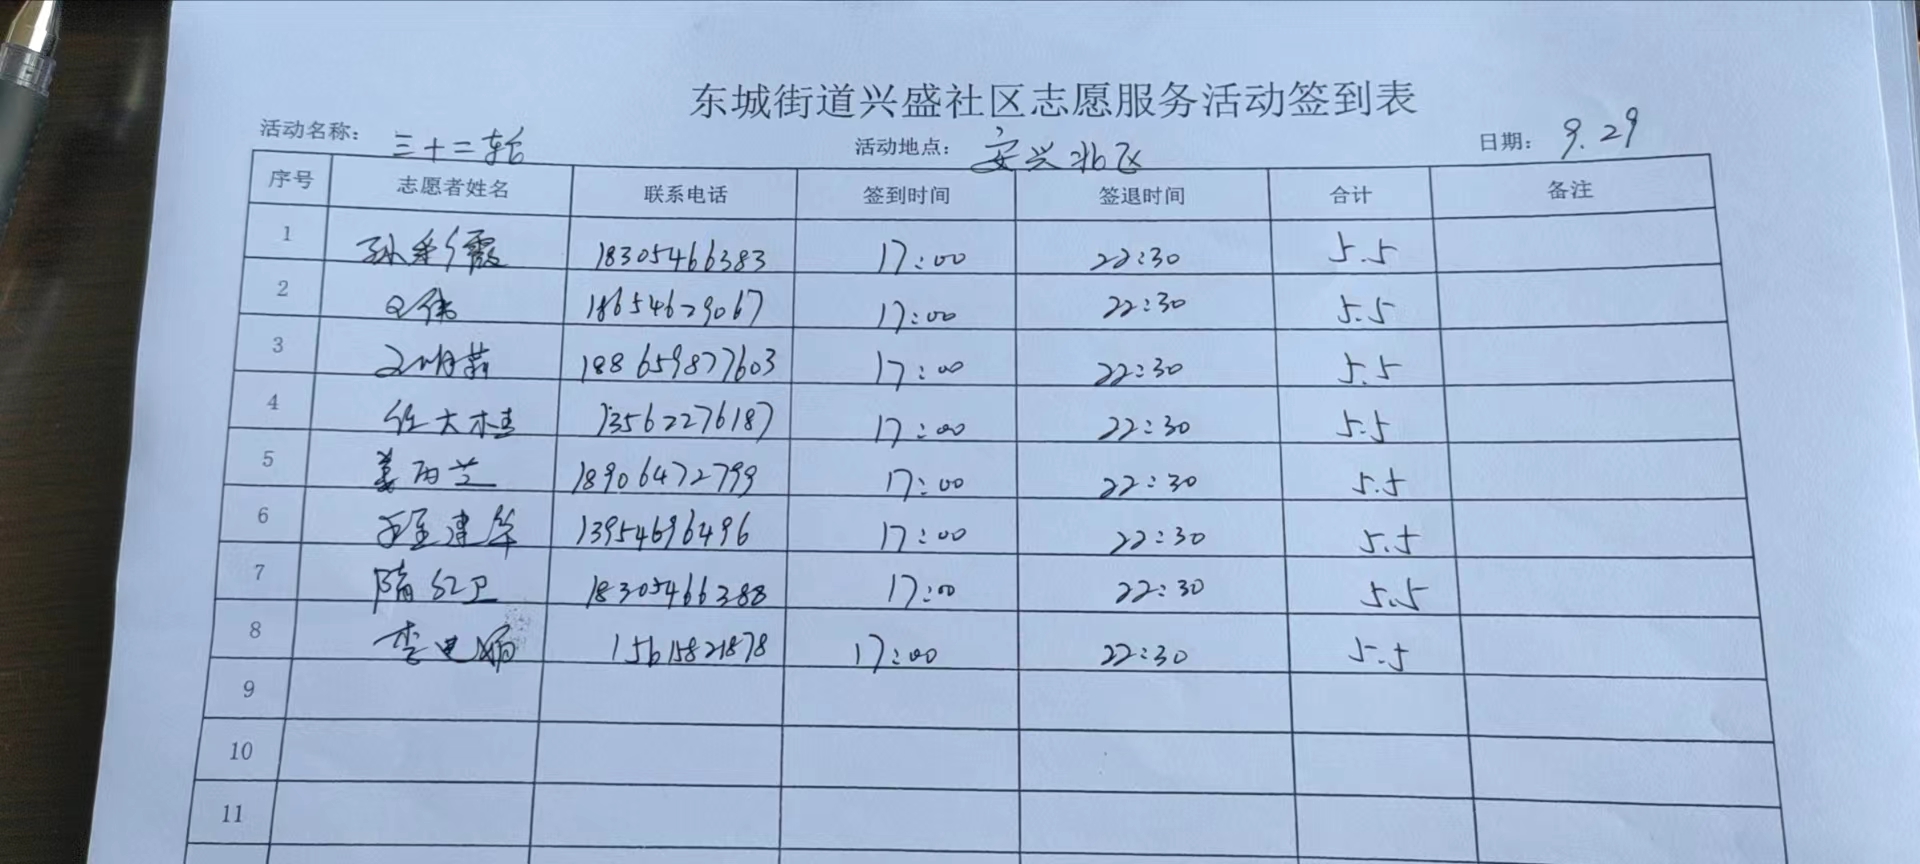 东城街道兴盛社区志愿服务活动签到表
活动名称： 三十二轮 活动地点： 安兴北区 日期： 9.29
序号 志愿者姓名 联系电话 签到时间 签退时间 合计 备注
1 孙彩霞 18305466383 17:00 22:30 5.5
2 18654629067 17:00 22:30 5.5
3 188659877603 17:00 22:30 5.5
4 任大桂 13562276187 17:00 22:30 5.5
5 姜丙兰 18906472799 17:00 22:30 5.5
6 程建华 13954696496 17:00 22:30 5.5
7 隋红卫 18305466388 17:00 22:30 5.5
8 李 15615821878 17:00 22:30 5.5
9
10
11